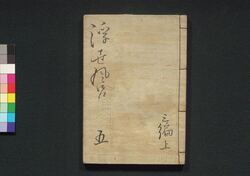 浮世風呂
五
三編
上